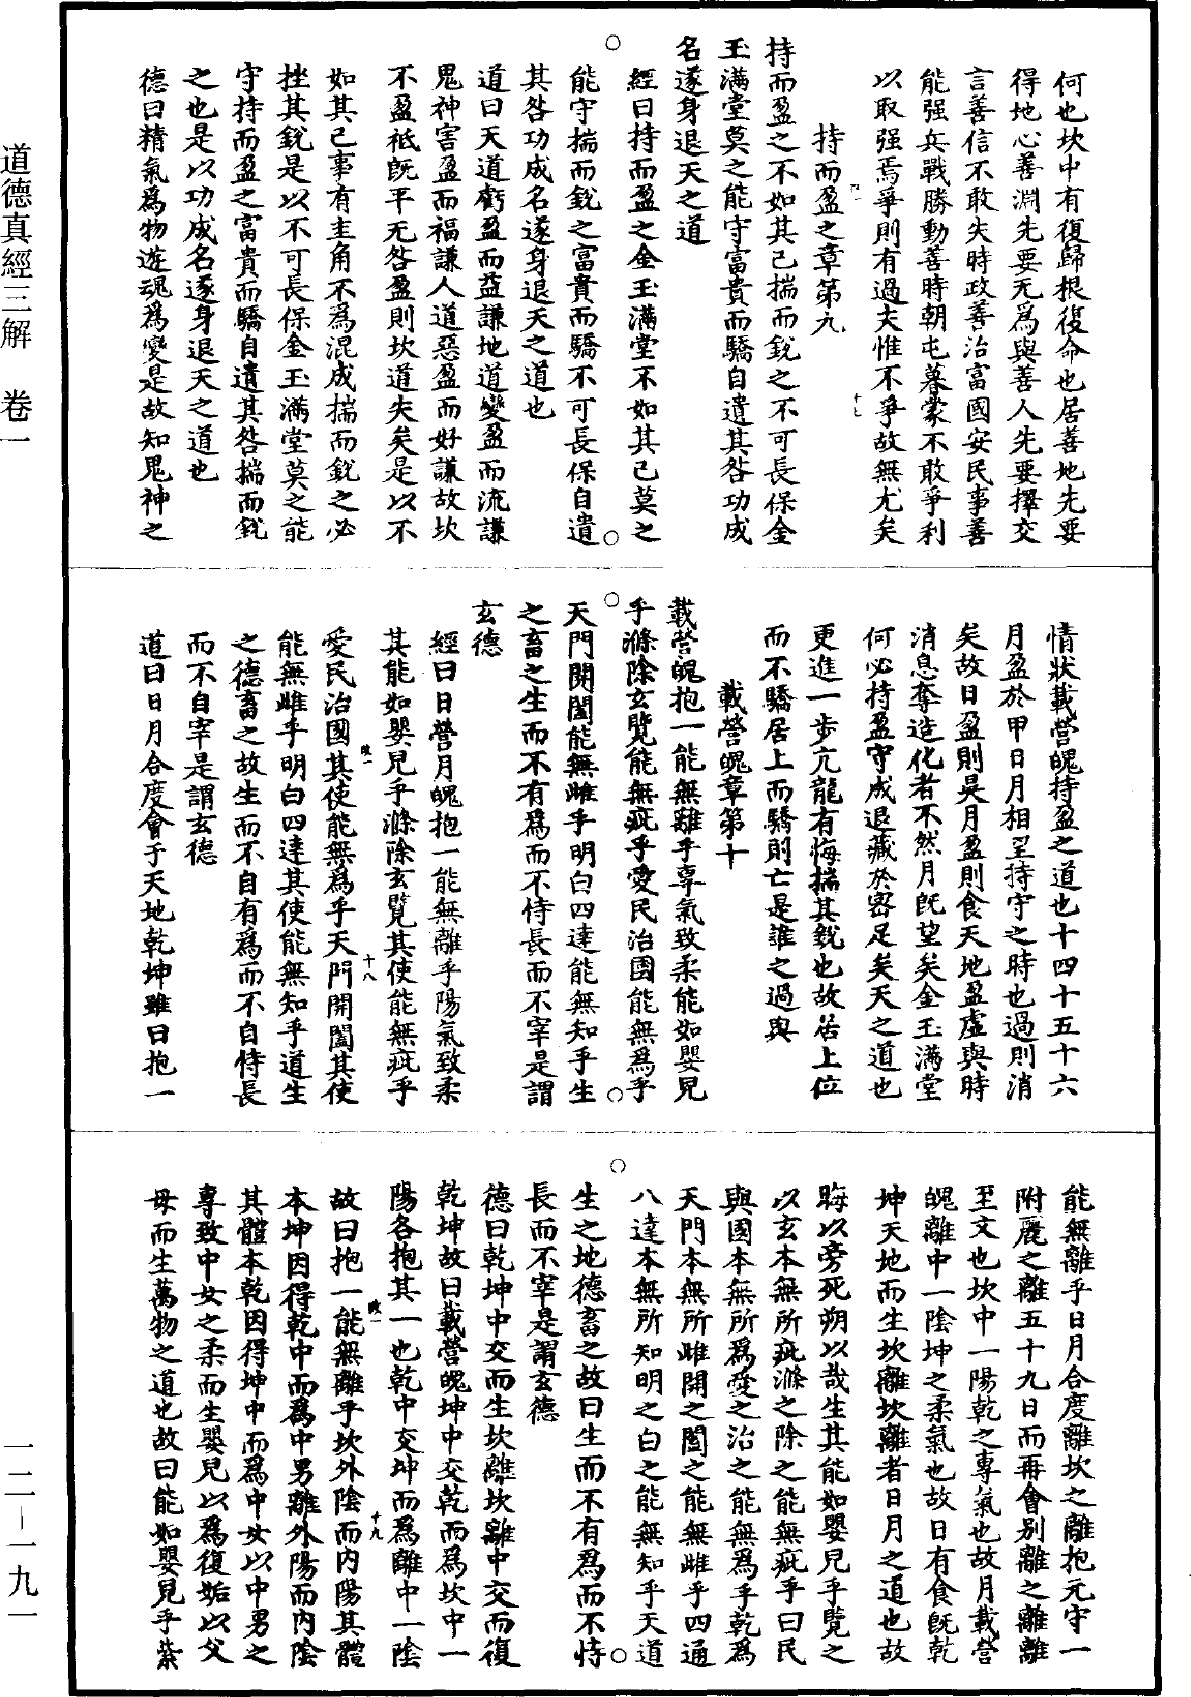 道德真經三解　卷一
何也坎中有復歸根復命也居善地先要
得地心善淵先要无爲與善人先要擇交
言善信不敢失時政善治富國安民事善
能强兵戰勝動善時朝屯暮蒙不敢爭利
以取强焉爭則有過夫惟不爭故無尤矣
持而盈之章第九
十七
持而盈之不如其已揣而銳之不可長保金
玉滿堂莫之能守富貴而驕自遺其咎功成
名遂身退天之道
經曰持而盈之金玉滿堂不如其已莫之
能守揣而銳之富貴而驕不可長保自遺
其咎功成名遂身退天之道也
道曰天道虧盈而益謙地道變盈而流謙
鬼神害盈而福謙人道惡盈而好謙故坎
不盈祗既平无咎盈則坎道失矣是以不
如其已事有圭角不爲混成揣而銳之必
挫其銳是以不可長保金玉滿堂莫之能
守持而盈之富貴而驕自遺其咎揣而銳
之也是以功成名遂身退天之道也
德曰精氣爲物遊魂爲變是故知鬼神之
情狀載營魄持盈之道也十四十五十六
月盈於甲日月相望持守之時也過則消
矣故日盈則昃月盈則食天地盈虛與時
消息奪造化者不然月既望矣金玉滿堂
何必持盈守成退藏於密足矣天之道也
更進一步亢龍有悔揣其銳也故居上位
而不驕居上而驕則亡是誰之過與
載營魄章第十
載營魄抱一能無離乎專氣致柔能如嬰兒
乎滌除玄覽能無疵乎愛民治國能無爲乎
天門開闔能無雌乎明白四達能無知乎生
之畜之生而不有爲而不恃長而不宰是謂
玄德
經曰日營月魄抱一能無離乎陽氣致柔
其能如嬰兒乎滌除玄覽其使能無疵乎
十八
愛民治國其使能無爲乎天門開闔其使
能無雌乎明白四達其使能無知乎道生
之德畜之故生而不自有爲而不自恃長
而不自宰是謂玄德
道曰日月合度會于天地乾坤雖曰抱一
能無離乎日月合度離坎之離抱元守一
附麗之離五十九日而再會别離之離離
至文也坎中一陽乾之專氣也故月載營
魄離中一陰坤之柔氣也故日有食既乾
坤天地而生坎離坎離者日月之道也故
晦以旁死朔以哉生其能如嬰兒乎覽之
以玄本無所疵滌之除之能無疵乎曰民
與國本無所爲愛之治之能無爲乎乾爲
天門本無所雌開之闔之能無雌乎四通
八達本無所知明之白之能無知乎天道
生之地德畜之故曰生而不有爲而不恃
長而不宰是謂玄德
德曰乾坤中交而生坎離坎離中交而復
乾坤故曰載營魄坤中交乾而爲坎中一
陽各抱其一也乾中交坤而爲離中一陰
十九
故曰抱一能無離乎坎外陰而內陽其體
本坤因得乾中而爲中男離外陽而內陰
其體本乾因得坤中而爲中女以中男之
專致中女之柔而生嬰兒以爲復姤以父
母而生萬物之道也故曰能如嬰兒乎紫
一二－一九一